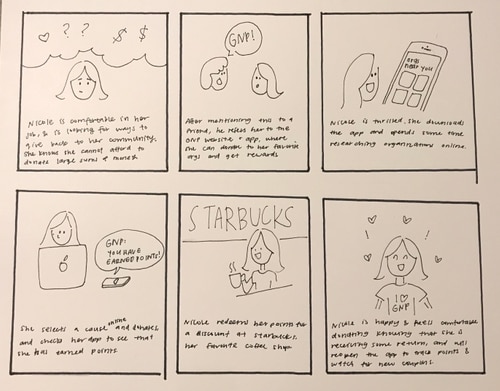 ? ? $ $
Nicole is comfortable in her
job, & is looking for ways to
give back to her community.
She knows she cannot afford to
donate large sums of money.
GNP!
After mentioning this to a
friend, he refers her to the
GNP website + app, where
she can donate to her favorite
orgs and get rewards
orgs
near you
Nicole is thrilled, she downloads
the app and spends some time
researching organizations online.
GNP:
YOU HAVE
EARNED POINTS!
She selects a cause online and donates,
and checks her app to see that
she has earned points.
STARBUCKS
Nicole redeems her points for
a discount at Starbucks,
her favorite coffee shop
I ♡
GNP
Nicole is happy & feels comfortable
donating knowing that she is
receiving some return, and will
reopen the app to track points &
watch for new coupons.